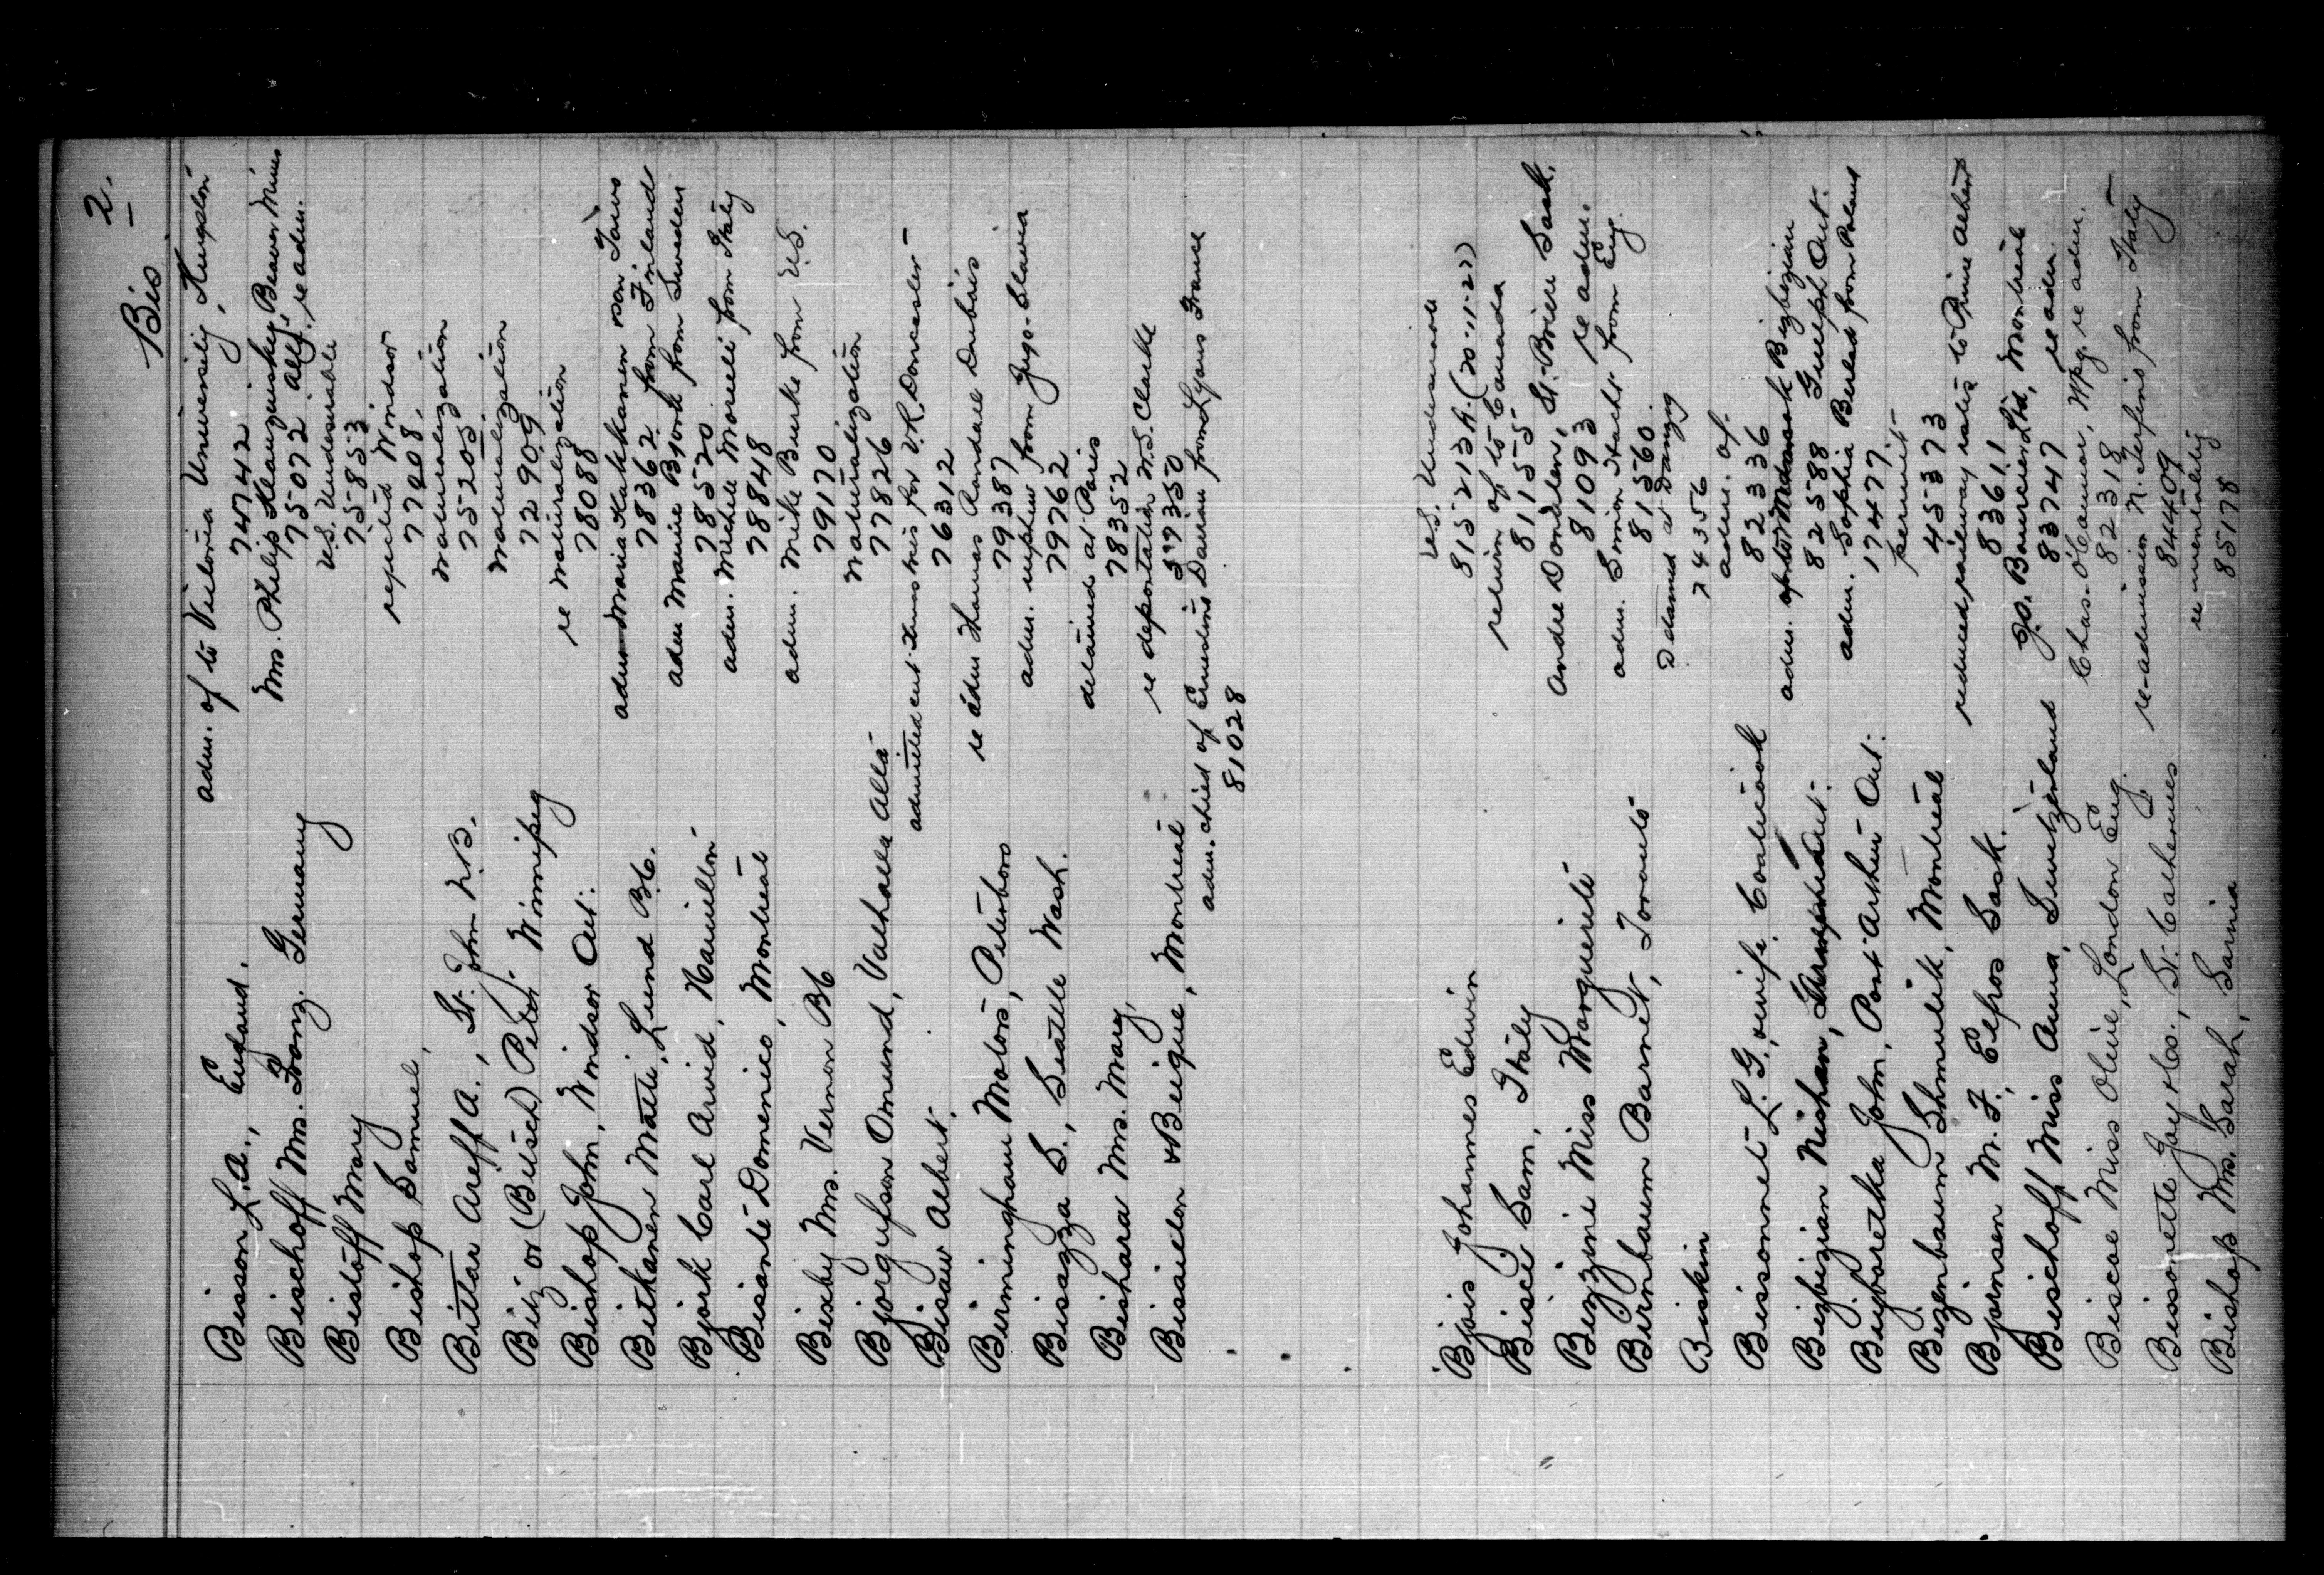 Bis 2.
Bisson L.A., England. adm. of to Victoria University, Kingston
74742
Bischoff Mrs. Franz. Germany Mrs. Philip Beaver Mines
75072 Alta. re adm.
Bistoff Mary U.S. Undesirable
75853
Bishop Samuel, rejected Windsor
77208
Bittar Areff A., St. John N.B. naturalization
75205
Bitz or (Bitsch) Peter. Winnipeg naturalization
72909
Bishop John, Windsor Ont. re naturalization
78088
Bitkanen Matti, Lund B.C. adm. Maria Kakkanen son Taivo
78362 from Finland
Bjork Carl Arvid, Hamilton adm Maurie Bjork from Sweden
78520
Bisante Domenico, Montreal adm. Michele Morelli from Italy
78848
Bixby Mrs. Vernon BC adm. Mike Burke from U.S.
79170
Bjorgufson Omund, Valhalla Alta naturalization
77826
Bisaw Albert. admitted ent. for V.R. Doncaster
76312
Birmingham Motors, Peterboro re adm Thomas Randall Dubois
79387
Bisazza S., Seattle Wash. adm. nephew from Jugo-Slavia
79762
Bishara Mrs. Mary, detained at Paris
78352
Bisaillon & Beique, Montreal re deportation W.S. Clarke
57350
adm. child of Ernestine Darian from Lyons France
81028
Bjois Johannes Edwin U.S. Undesirable
815213 A. (20-11-22)
Bisci Sam, Italy return of to Canada
81155
Bizzini Miss Marguerite Andre Donalen, St. Brieu Sask.
81093 re adm.
Birnbaum Barnet, Toronto adm. Simon Hacht from Eng.
81560.
Biskin Ddamed at Danzig
74356
Bissonnet L.G., wife, Coaticook adm. of
82336
Bizbizian Nishan, Ont. adm. of Bizbizian
82588 Guelph Ont.
Bizboretka John, Port Arthur Ont. adm. Sophia Berlad from Poland
17477
Bizenbaum Shmulik, Montreal permit
455373
Bjornsen M.F., Elfros Sask. reduced railway rates to Prince Albert
83611
Bischoff Miss Anna, Switzerland Jo. Bourcier Ltd, Montreal
83747 re adm.
Biscoe Miss Olive, London Eng. Chas. O'Connor, Wpg. re adm.
82318
Bissonette Jay & Co., St. Catherines re-admission N. Serfini from Italy
84409
Bishop Mrs. Sarah, Sarnia re mentality
85178